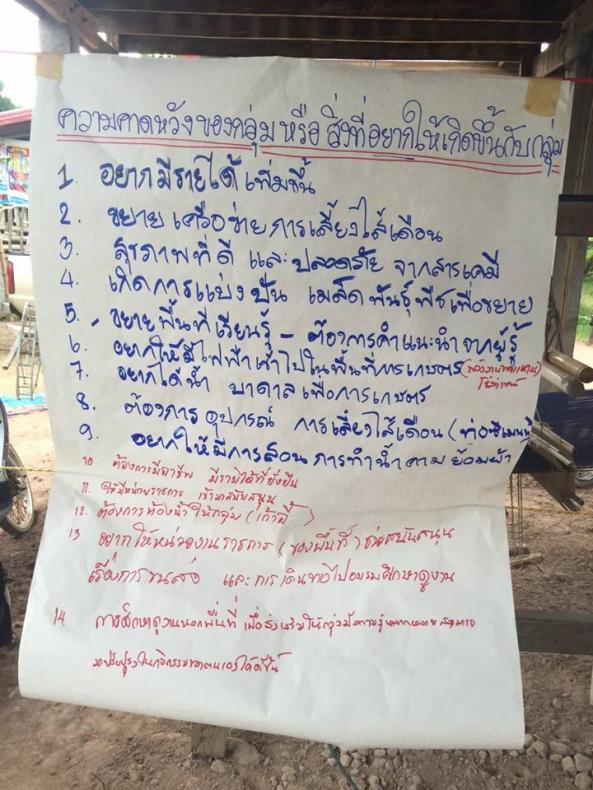 ความคาดหวังของกลุ่ม หรือ สิ่งที่อยากให้เกิดขึ้นกับกลุ่ม
1. อยากมีรายได้เพิ่มขึ้น
2. ขยายเครือข่ายการเลี้ยงไส้เดือน
3. สุขภาพที่ดี และปลอดภัย จากสารเคมี
4. เกิดการแบ่งปัน เมล็ดพันธุ์พืชเพื่อขยาย
5. - ขยายพื้นที่เรียนรู้ - ต้องการคำแนะนำจากผู้รู้
6. อยากให้มีไฟฟ้าเข้าไปในพื้นที่การเกษตร
7. อยากได้น้ำ บาดาลเพื่อการเกษตร
8. ต้องการอุปกรณ์ การเลี้ยงไส้เดือน (ท่อซีเมนต์)
9. อยากให้มีการสอน การทำน้ำคาม ย้อมผ้า
10. ต้องการมีอาชีพ มีรายได้ที่ยั่งยืน
11. ให้มีหน่วยราชการ เข้ามาสนับสนุน
12. ต้องการห้องน้ำให้กลุ่ม (เก้าอี้)
13 อยากให้หน่วยงานราชการ (ของพื้นที่) ช่วยสนับสนุน
เรื่องการขนส่ง และการเดินทางไปอบรมศึกษาดูงาน
14. การศึกษาดูงานนอกพื้นที่ เพื่อส่งเสริมให้กลุ่มมีความรู้